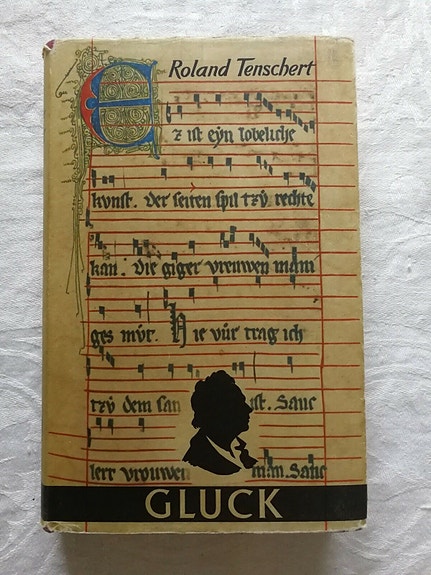 Roland Tenschert
Ez ist eyn lobeliche
kunst. der seiten spil tzv rechte
kan. die giger vreuwen mām
ges mvt. Hie vür trag ich
tzv dem san ist. Sanc
lerr vrouwen mān. Sanc
GLUCK